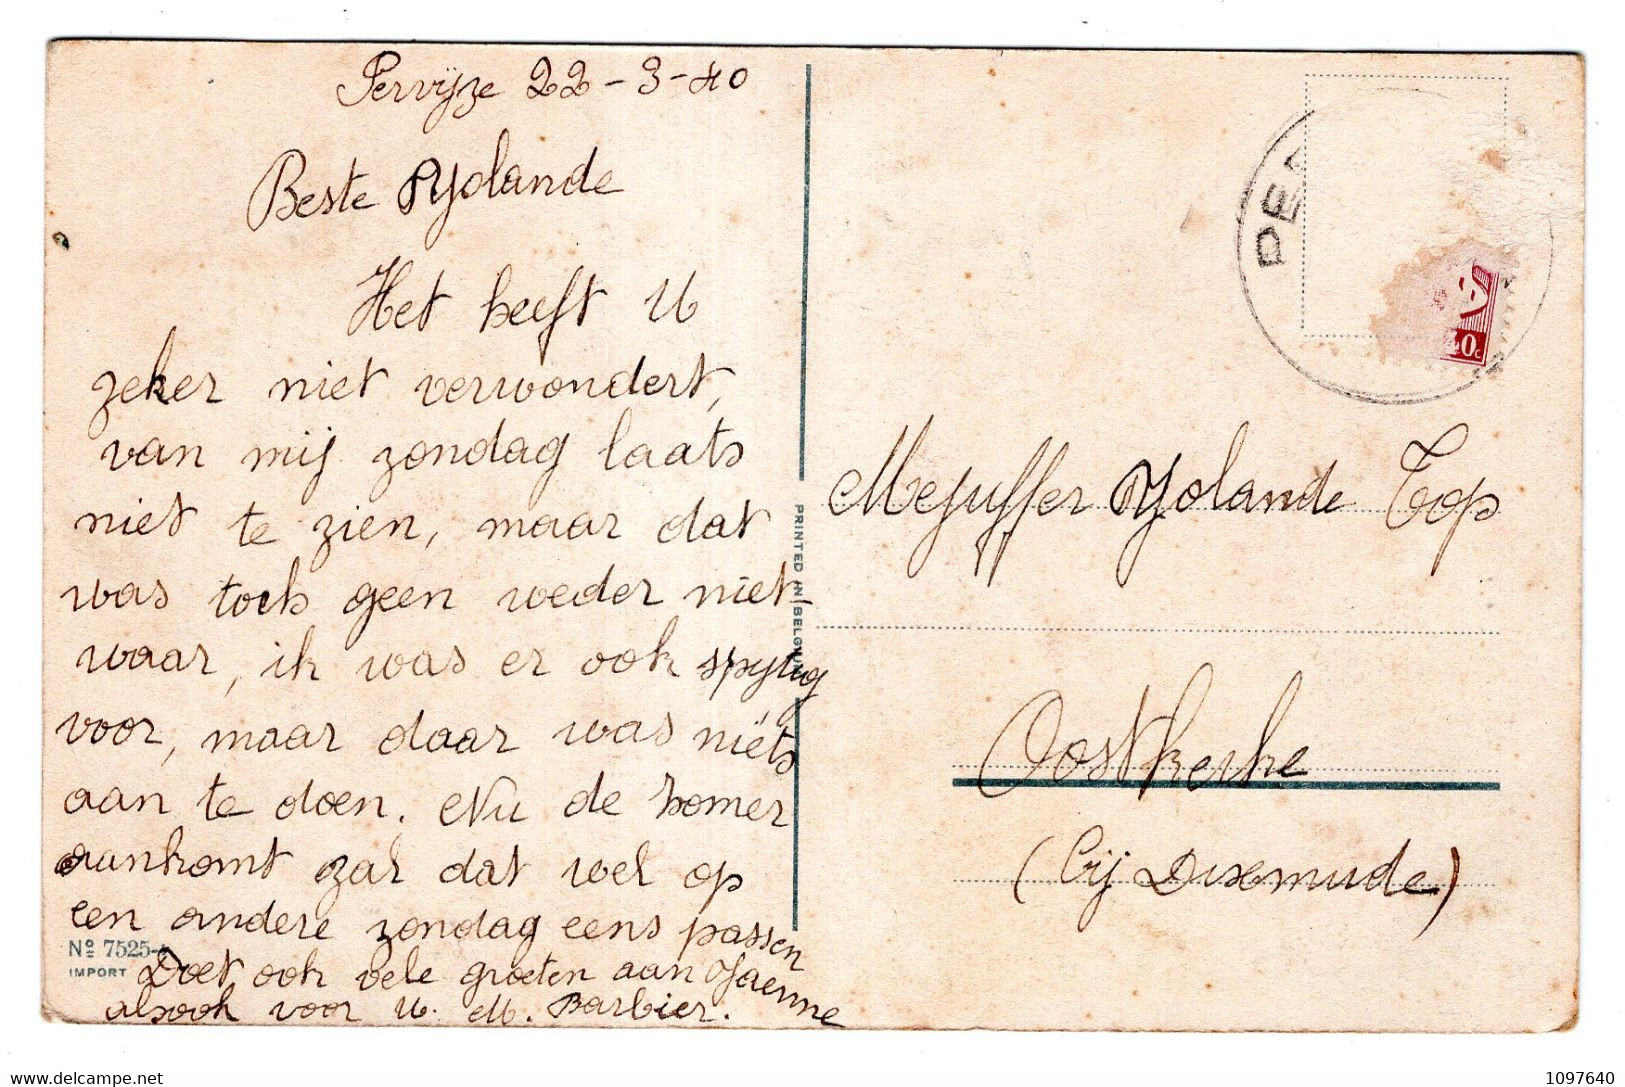 Pervijze 22-3-40
Beste Yolande
Het heeft U
zeker niet verwondert,
van mij zondag laats
niet te zien, maar dat
was toch geen weder niet-
waar, ik was er ook spijtig
voor, maar daar was niets
aan te doen. Nu de komer
aankomt zal dat wel op
een andere zondag eens passen
Doet ook vele groeten aan
alsook voor U. M. Barbier.
Nº 7525-
IMPORT
PRINTED IN BELGIUM
PE
0c
Mejuffer Yolande Top
Oostkerke
(bij Dixmude)
delcampe.net
The_seller
1097640